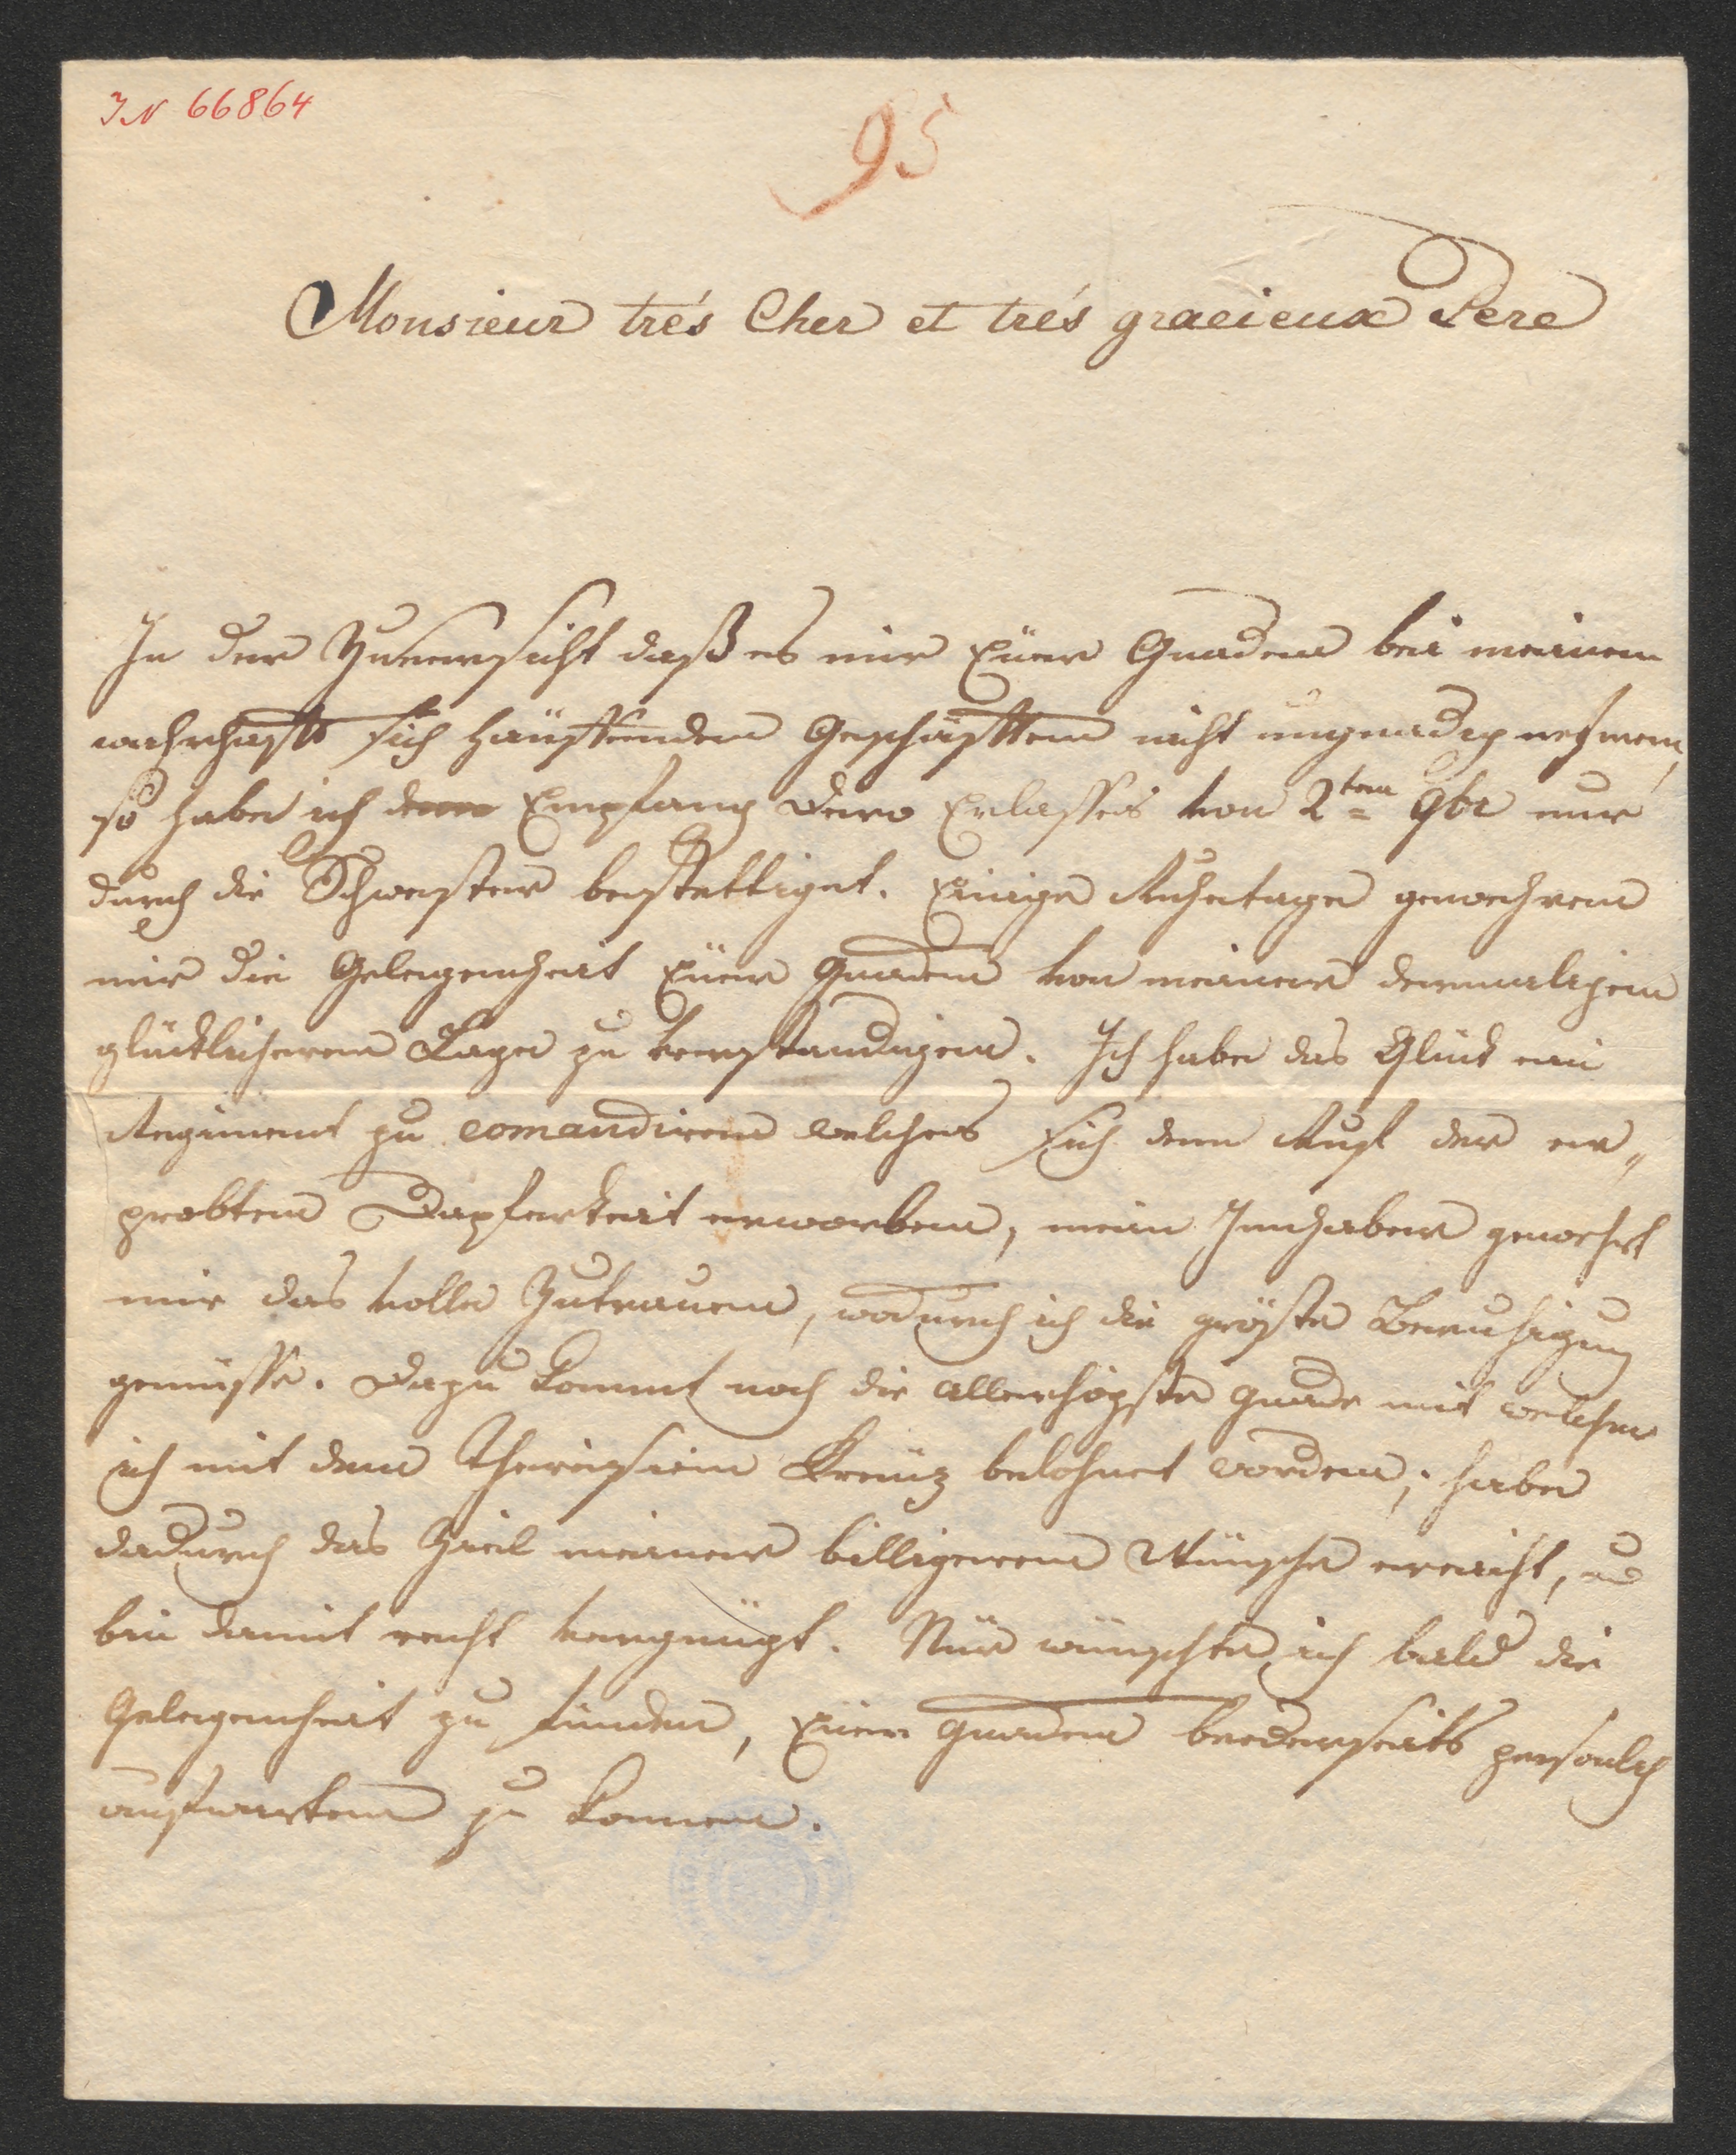 IN 66864
95
Monsieur trés Cher et trés gracieux Pere
In der Zuversicht daß es mir Euer Gnaden bei meinem
wahrhaft sich häuffenden Geschäfften nicht ungnadig nehmen,
so habe ich denn Empfang Dero Erlasses von 2ten 9br nur
durch die Schwester bestettiget. Einige Ruhetage gewehren
mir die Gelegenheit Euer Gnaden von meiner dermaligen
glücklicheren Lage zu verstandigen. Ich habe das Glück ein
Regiment zu comandiren welches sich denn Ruf der er„
probten Dapferkeit erworben, mein Innhaber gewehrt
mir das volle Zutrauen, wodurch ich die gröste Beruhigung
genüsse. Dazu kommt noch die allerhögste Gnade mit welcher
ich mit dem Theresien Kreuz belohnet worden; habe
dadurch das Ziel meiner billigeren Wünsche erreicht, u
bin damit recht vergnügt. Nur wünschte ich bald die
Gelegenheit zu finden, Euer Gnaden beederseits persönlich
aufwarten zu konnen.